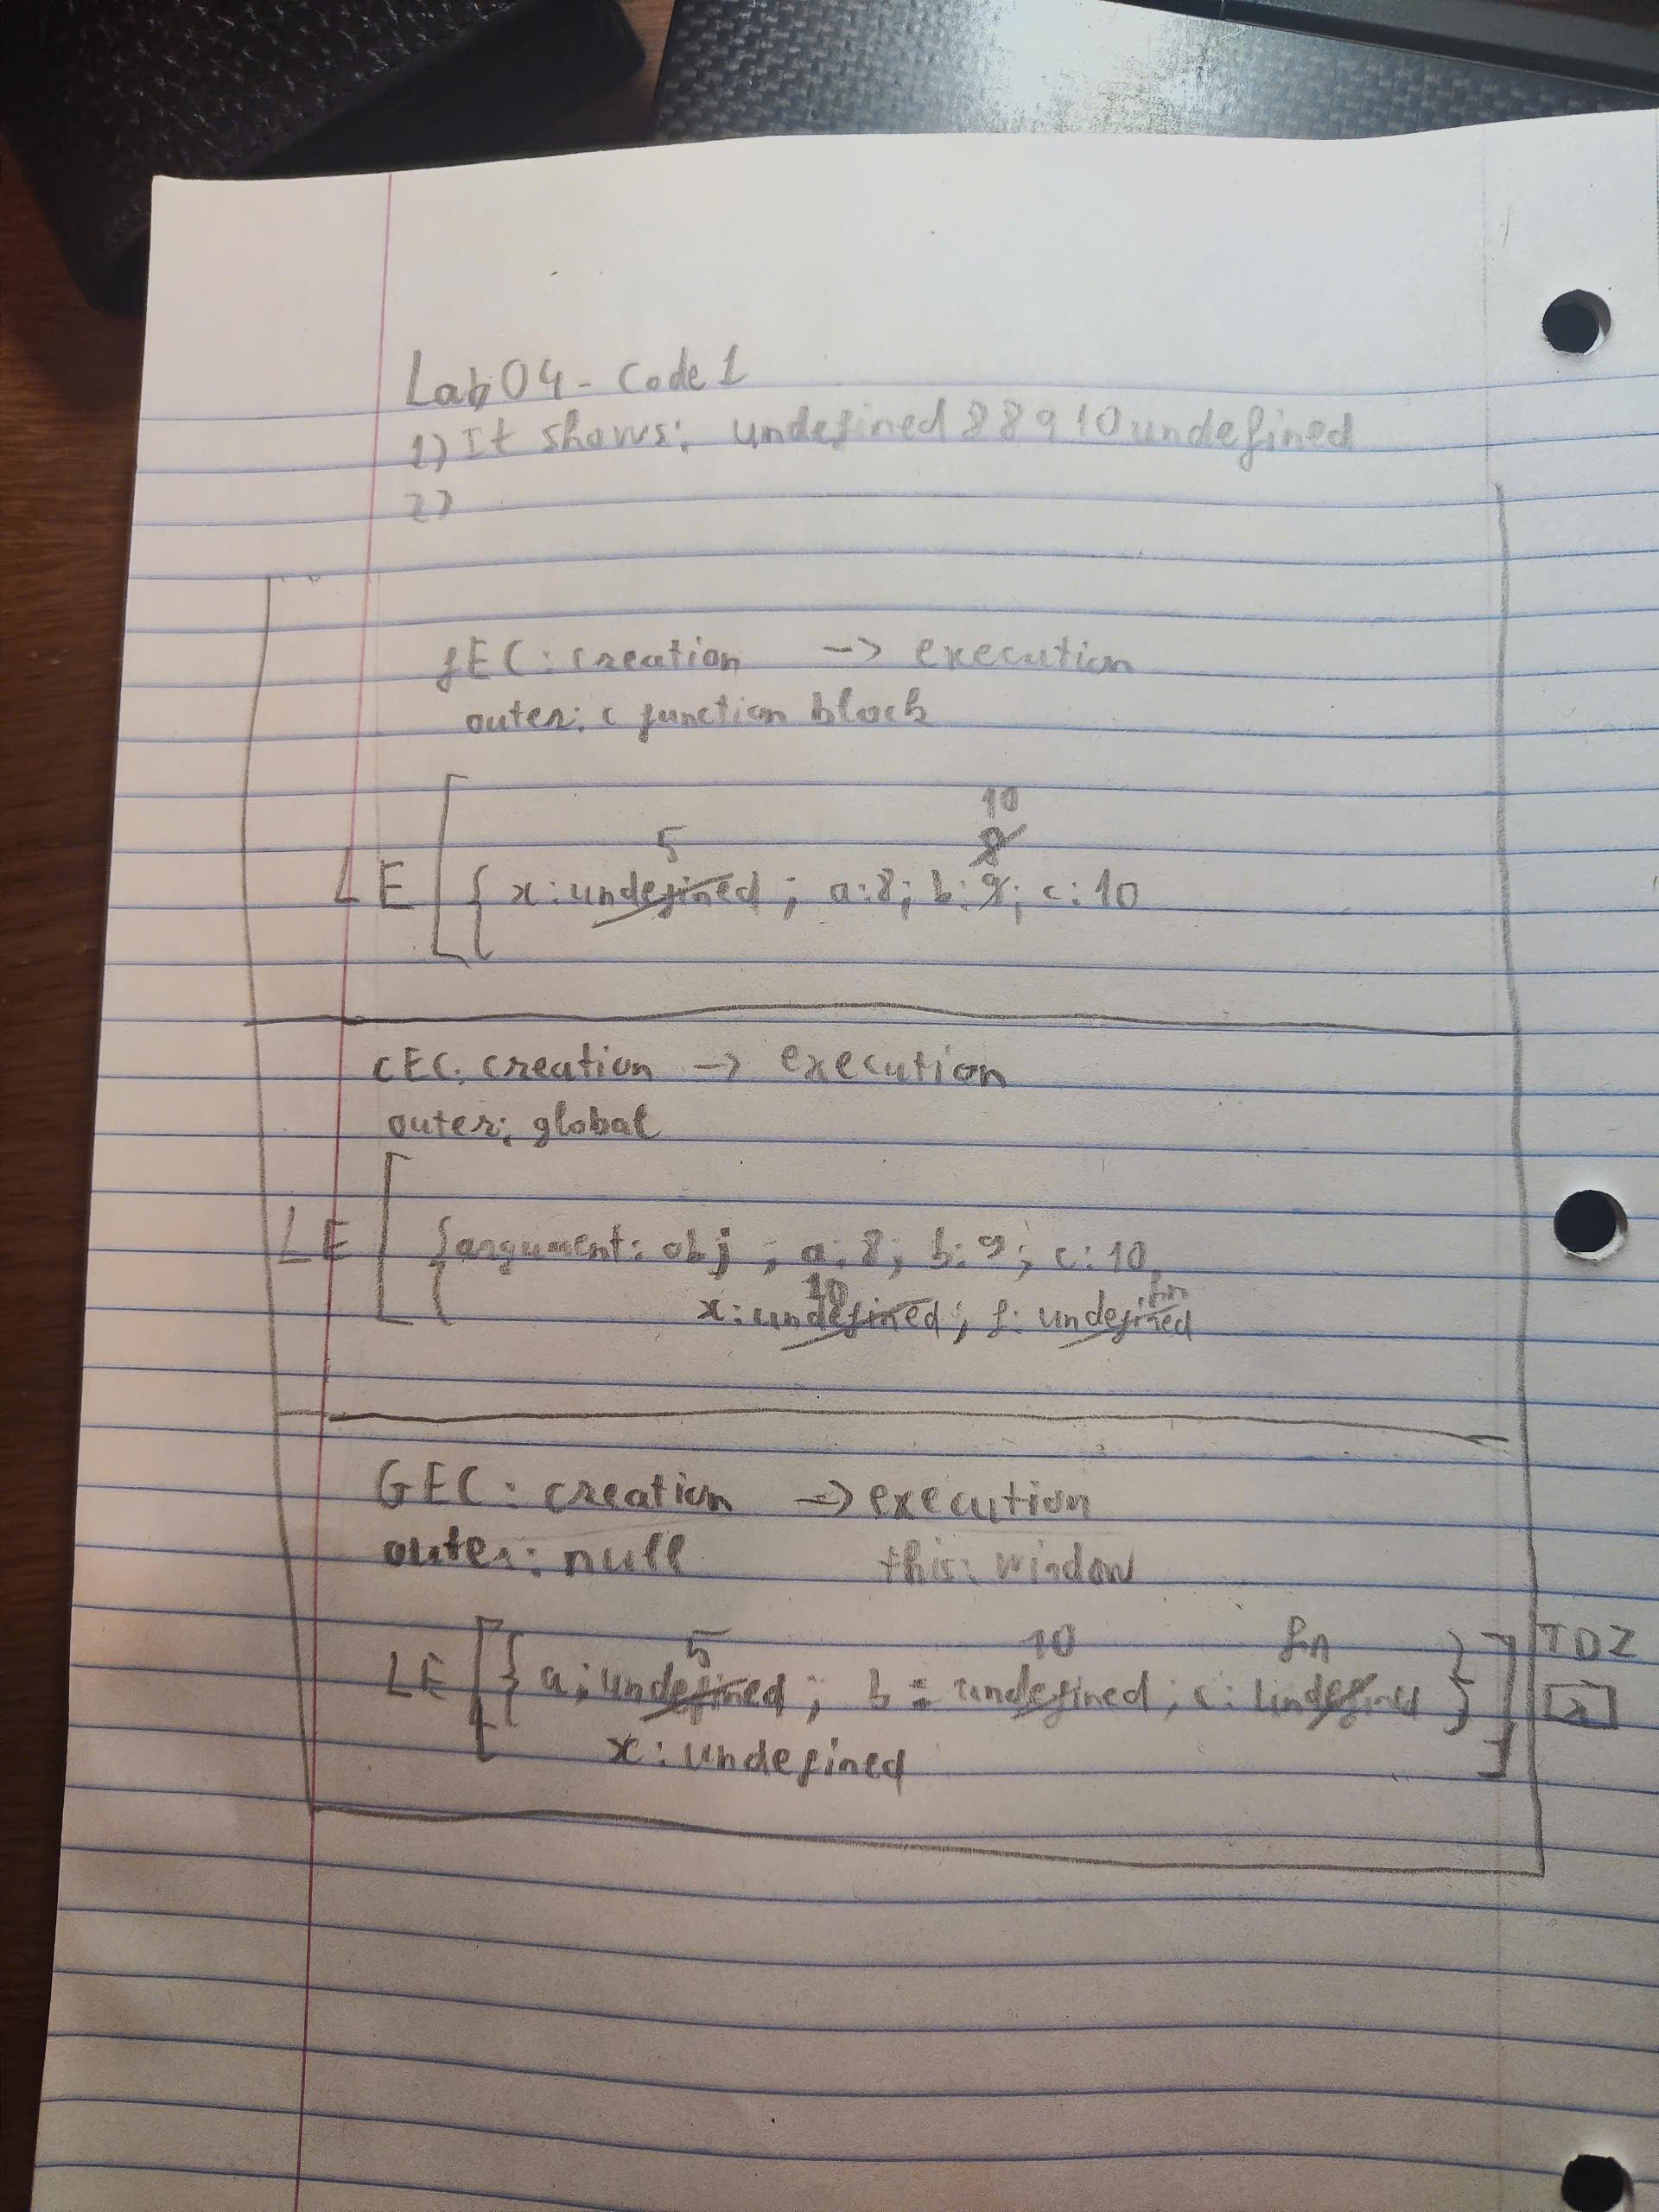 Lab 04 - Code 1
1) It shows: undefined 8 8 9 10 undefined
2)
fEC: creation -> execution
outer: c function block
10
5 8
LE [ { x: undefined ; a:8; b:9; c:10
cEC: creation -> execution
outer: global
LE [ { argument: obj ; a:8; b:9; c:10,
10 fn
x: undefined ; f: undefined
GEC: creation -> execution
outer: null this: window
5 10 fn TDZ
LE [ { a: undefined ; b: undefined ; c: undefined } ]
x: undefined